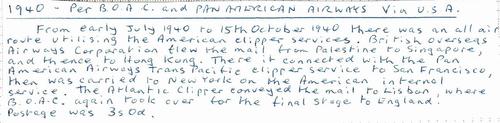 1940 - Per B.O.A.C. and PAN AMERICAN AIRWAYS Via U.S.A.
From early July 1940 to 15th October 1940 there was an all air
route utilising the American clipper services. British Overseas
Airways Corporation flew the mail from Palestine to Singapore,
and thence to Hong Kong. There it connected with the Pan
American Airways Trans Pacific clipper service to San Francisco,
then was carried to New York on the American internal
service. The Atlantic Clipper conveyed the mail to Lisbon, where
B.O.A.C. again took over for the final stage to England.
Postage was 3s0d.